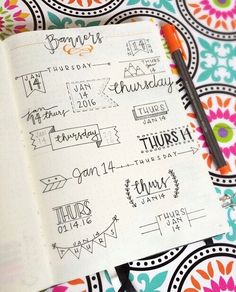 Banners
14
JAN
14
THURSDAY
JAN
14
2016
JAN
14
thursday
jan 14 thurs
THURS
JAN 14
thursday
THURS 14
THURSDAY
Jan 14
thurs
JAN 14
THURS
01.14.16
THURS
JAN 14
JAN 14
THURS